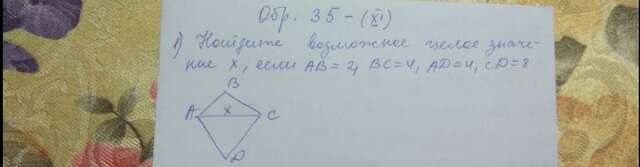 Обр. 35-(XI)
1) Найдите возможное целое значе-
ние x, если AB=2, BC=4, AD=4, CD=8
B
A x C
D